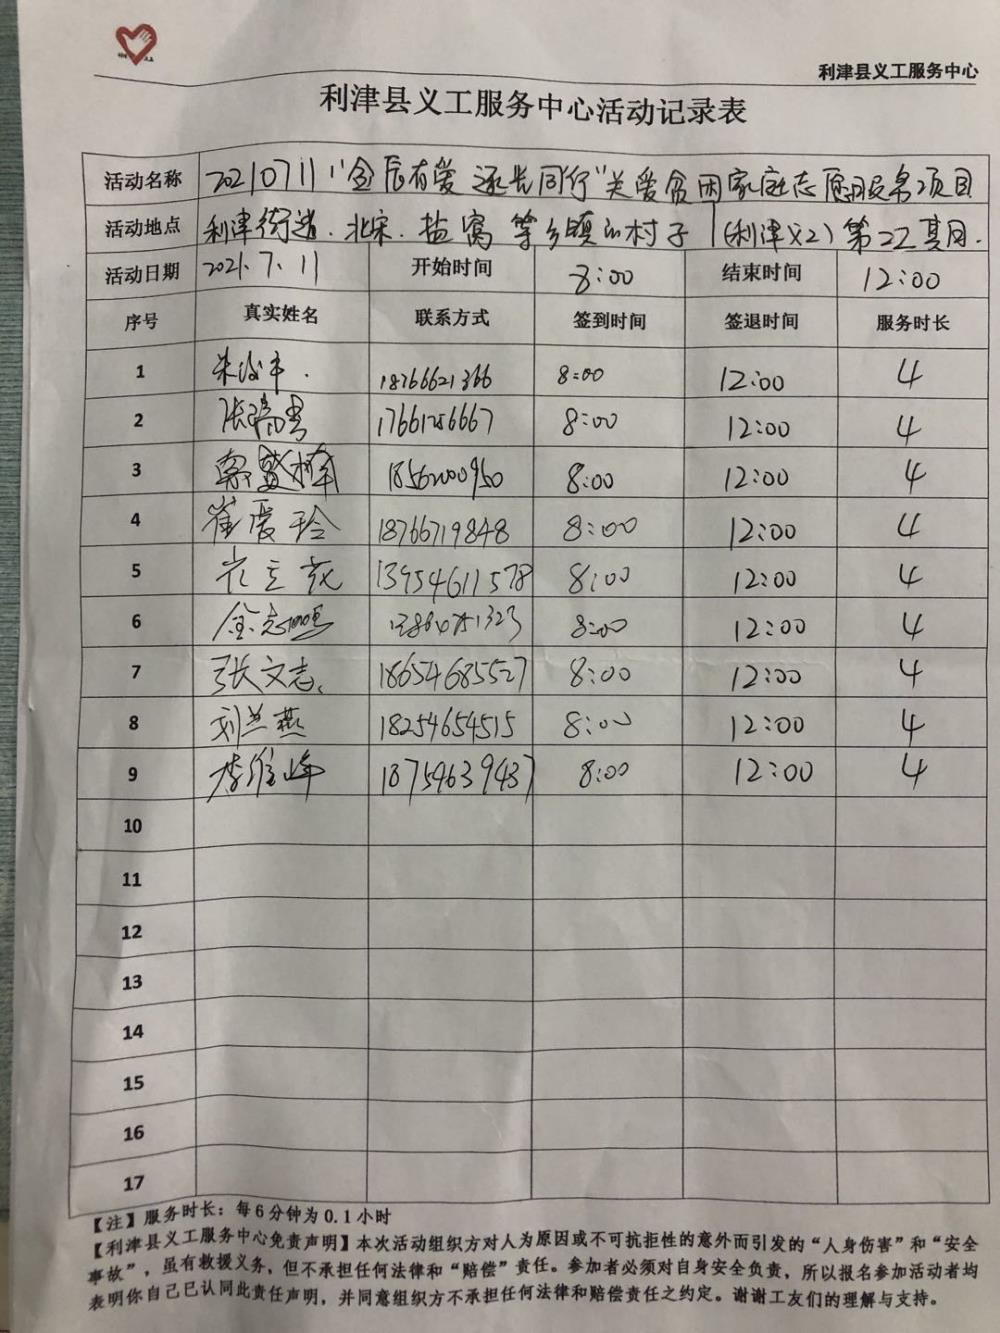 利津县义工服务中心
利津县义工服务中心活动记录表
活动名称 20210711"金辰有爱 同行"关爱贫困家庭志愿服务项目
活动地点 利津街道.北宋.盐窝等乡镇的村子 (利津义工)第22期.
活动日期 2021.7.11 开始时间 8:00 结束时间 12:00
序号 真实姓名 联系方式 签到时间 签退时间 服务时长
1 18766621366 8:00 12:00 4
2 17661286667 8:00 12:00 4
3 18562000950 8:00 12:00 4
4 崔爱玲 18766719848 8:00 12:00 4
5 13954611578 8:00 12:00 4
6 金志鸣 8:00 12:00 4
7 张文志 18654685527 8:00 12:00 4
8 刘兰燕 18254654515 8:00 12:00 4
9 李维峰 18754639437 8:00 12:00 4
10
11
12
13
14
15
16
17
【注】服务时长：每6分钟为0.1小时
【利津县义工服务中心免责声明】本次活动组织方对人为原因或不可抗拒性的意外而引发的"人身伤害"和"安全
事故"，虽有救援义务，但不承担任何法律和"赔偿"责任。参加者必须对自身安全负责，所以报名参加活动者均
表明你自己已认同此责任声明，并同意组织方不承担任何法律和赔偿责任之约定。谢谢工友们的理解与支持。